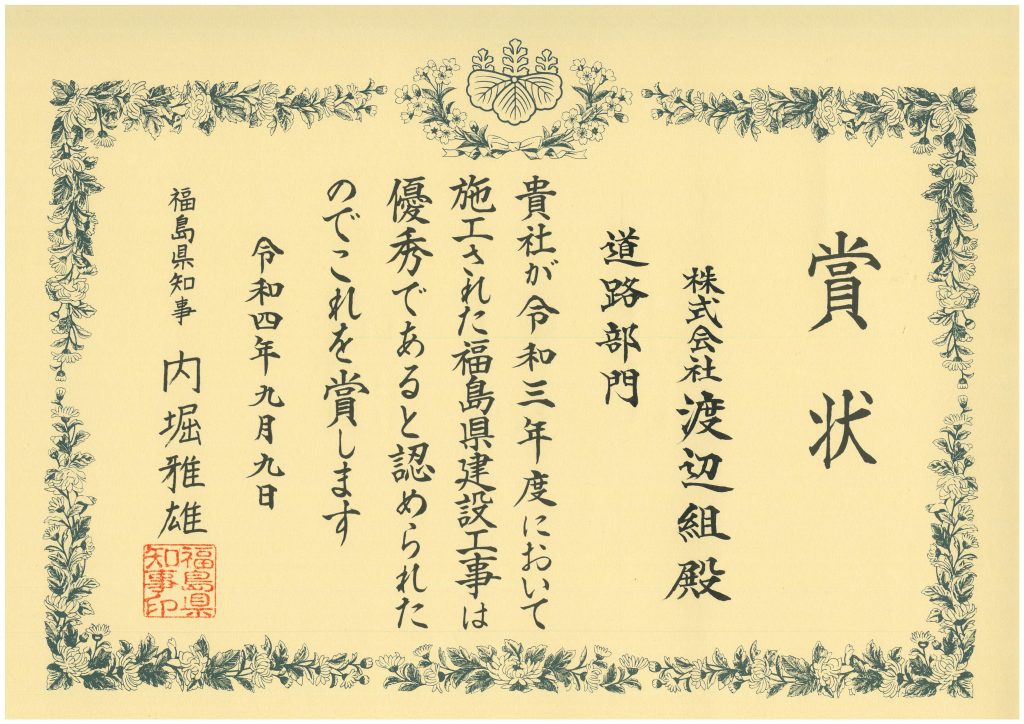 賞状
株式会社渡辺組殿
道路部門
貴社が令和三年度において
施工された福島県建設工事は
優秀であると認められた
のでこれを賞します
令和四年九月九日
福島県知事 内堀雅雄
福島県
知事印